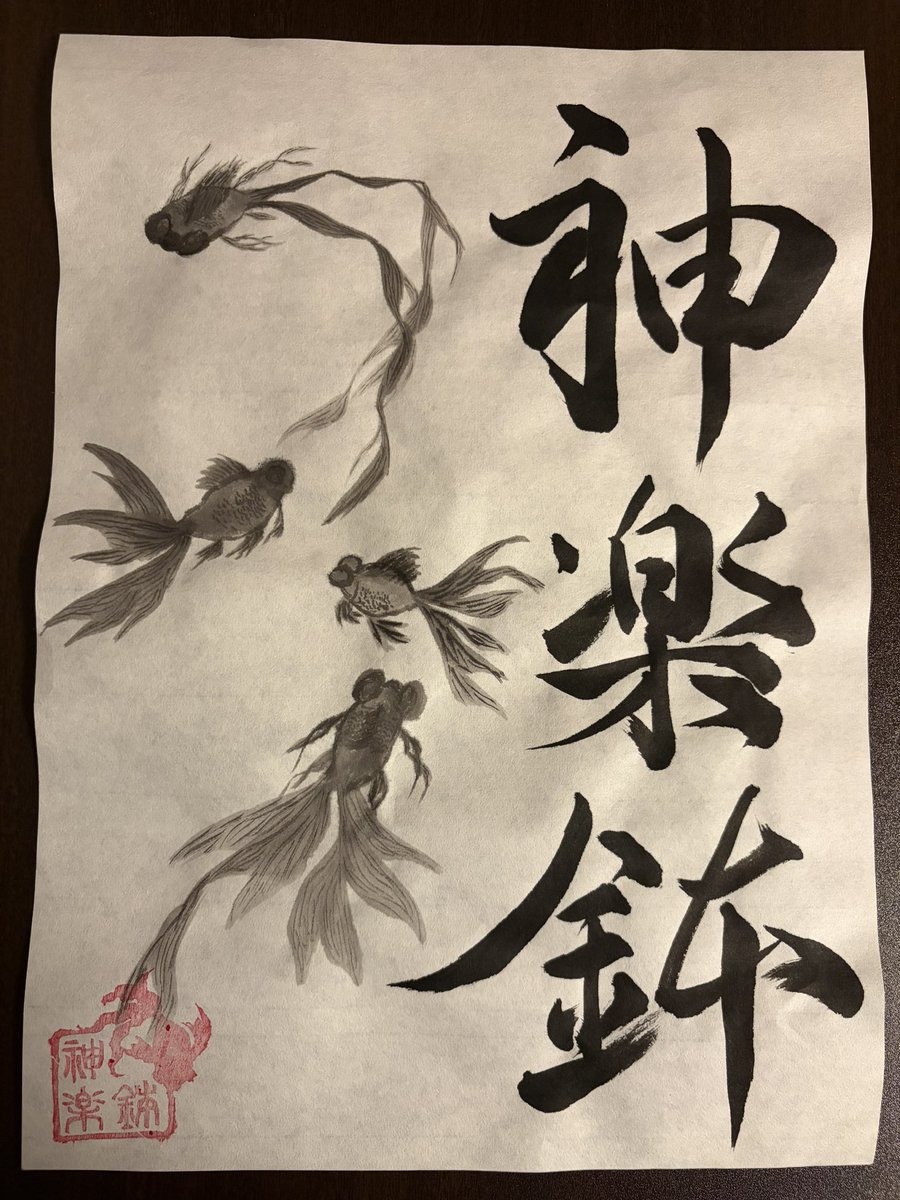 神楽鉢
神楽
鉢